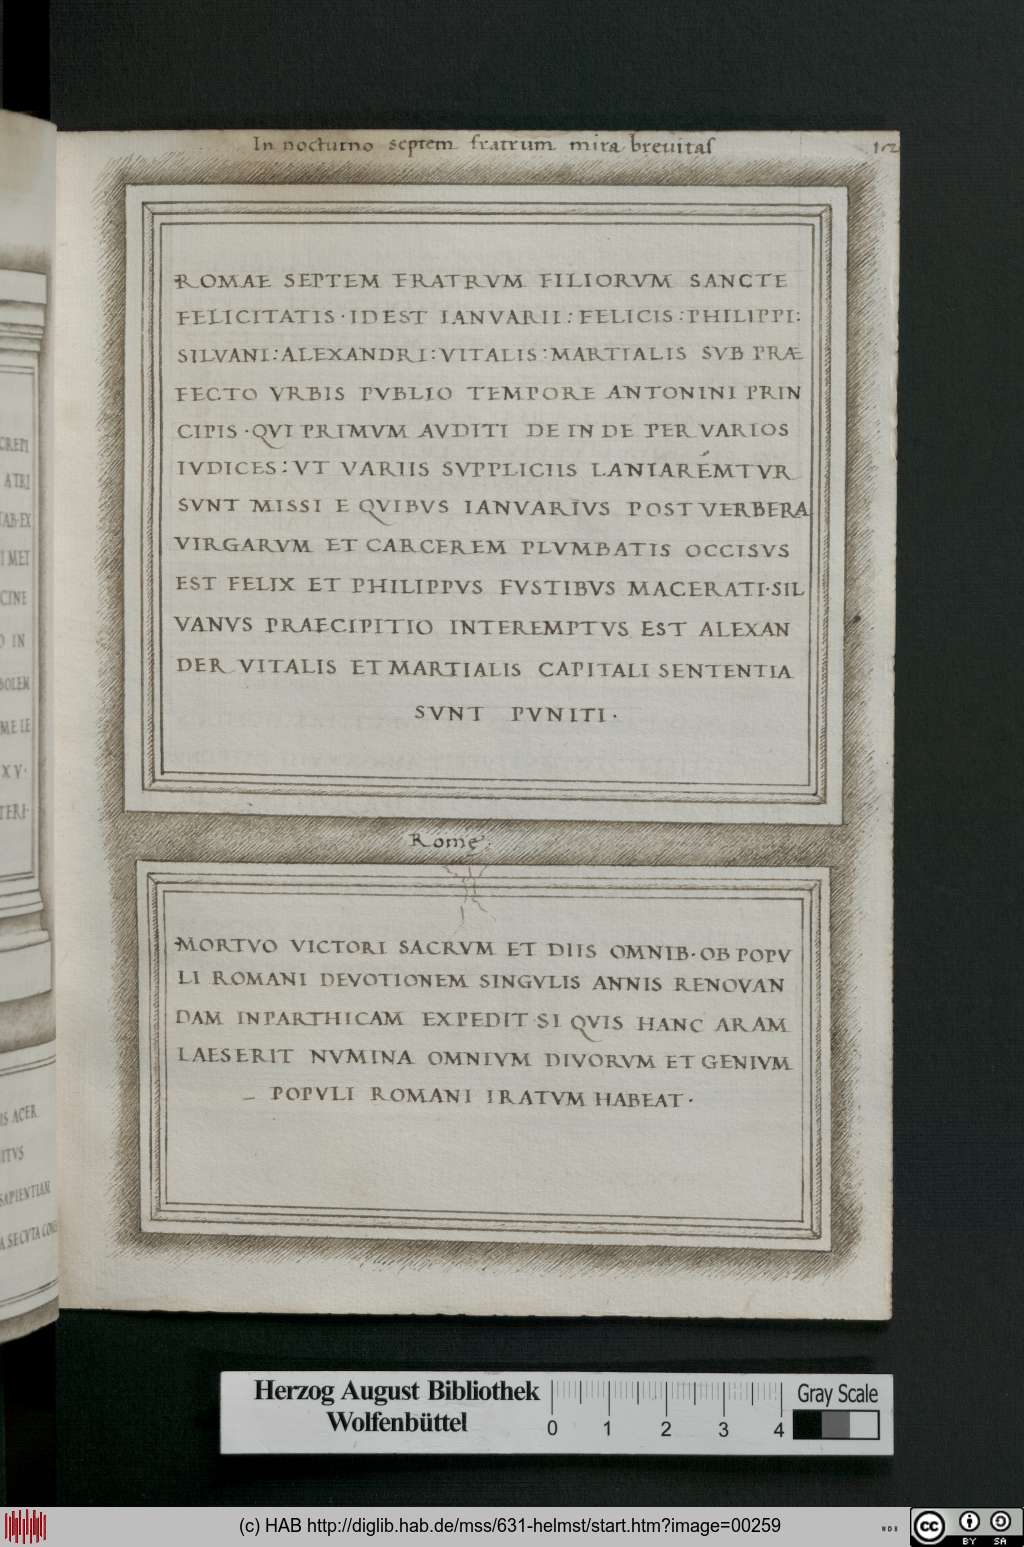 In nocturno septem fratrum mira breuitas
ROMAE SEPTEM FRATRVM FILIORVM SANCTE
FELICITATIS · IDEST IANVARII : FELICIS : PHILIPPI :
SILVANI : ALEXANDRI : VITALIS : MARTIALIS SVB PRÆ
FECTO VRBIS PVBLIO TEMPORE ANTONINI PRIN
CIPIS · QVI PRIMVM AVDITI DE IN DE PER VARIOS
IVDICES : VT VARIIS SVPPLICIIS LANIARÉMTVR
SVNT MISSI E QVIBVS IANVARIVS POST VERBERA
VIRGARVM ET CARCEREM PLVMBATIS OCCISVS
EST FELIX ET PHILIPPVS FVSTIBVS MACERATI · SIL
VANVS PRAECIPITIO INTEREMPTVS EST ALEXAN
DER VITALIS ET MARTIALIS CAPITALI SENTENTIA
SVNT PVNITI ·
Romę
MORTVO VICTORI SACRVM ET DIIS OMNIB · OB POPV
LI ROMANI DEVOTIONEM SINGVLIS ANNIS RENOVAN
DAM INPARTHICAM EXPEDIT · SI QVIS HANC ARAM
LAESERIT NVMINA OMNIVM DIVORVM ET GENIVM
POPVLI ROMANI IRATVM HABEAT ·
CREPI
ATRI
TAB · EX
I MEI
CINE
O IN
BOLEM
ME LE
XV ·
TERI ·
IS ACER
ITVS
SAPIENTIAM
A SECVTA
Herzog August Bibliothek
Wolfenbüttel
0 1 2 3 4
Gray Scale
(c) HAB http://diglib.hab.de/mss/631-helmst/start.htm?image=00259
WDB
cc BY SA